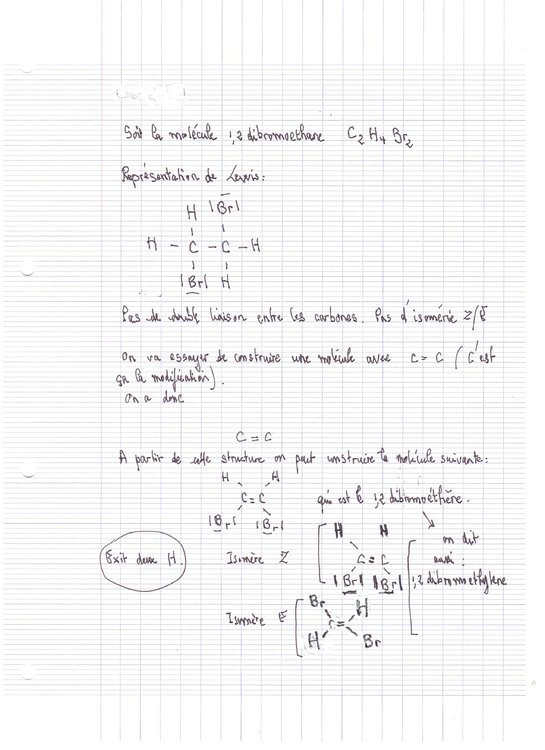 Soit la molécule 1,2 dibromoethane C2H4Br2
Représentation de Lewis:
H |Br|
H - C - C - H
|Br| H
Pas de double liaison entre les carbones. Pas d'isomérie Z/E
On va essayer de construire une molécule avec C=C (C'est
ça la modification).
On a donc
C=C
A partir de cette structure on peut construire la molécule suivante:
H H
C=C
|Br| |Br|
qui est le 1,2 dibromoéthène.
Exit deux H.
Isomère Z
H H
C=C
|Br| |Br|
on dit
aussi:
1,2 dibromoethylene
Isomère E
Br H
C=
H Br